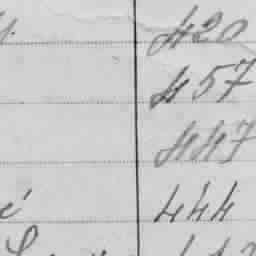 420
457
447
é 444